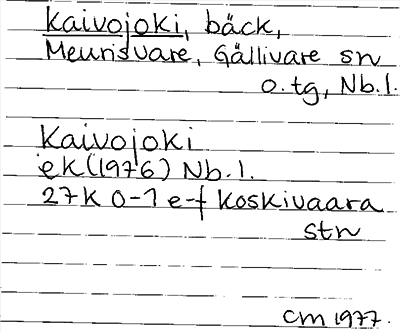 Kaivojoki, bäck,
Meurisvare, Gällivare sn
o. tg, Nb. l.
Kaivojoki
ek (1976) Nb. l.
27K 0-1 e-f Koskivaara
stn
CM 1977.